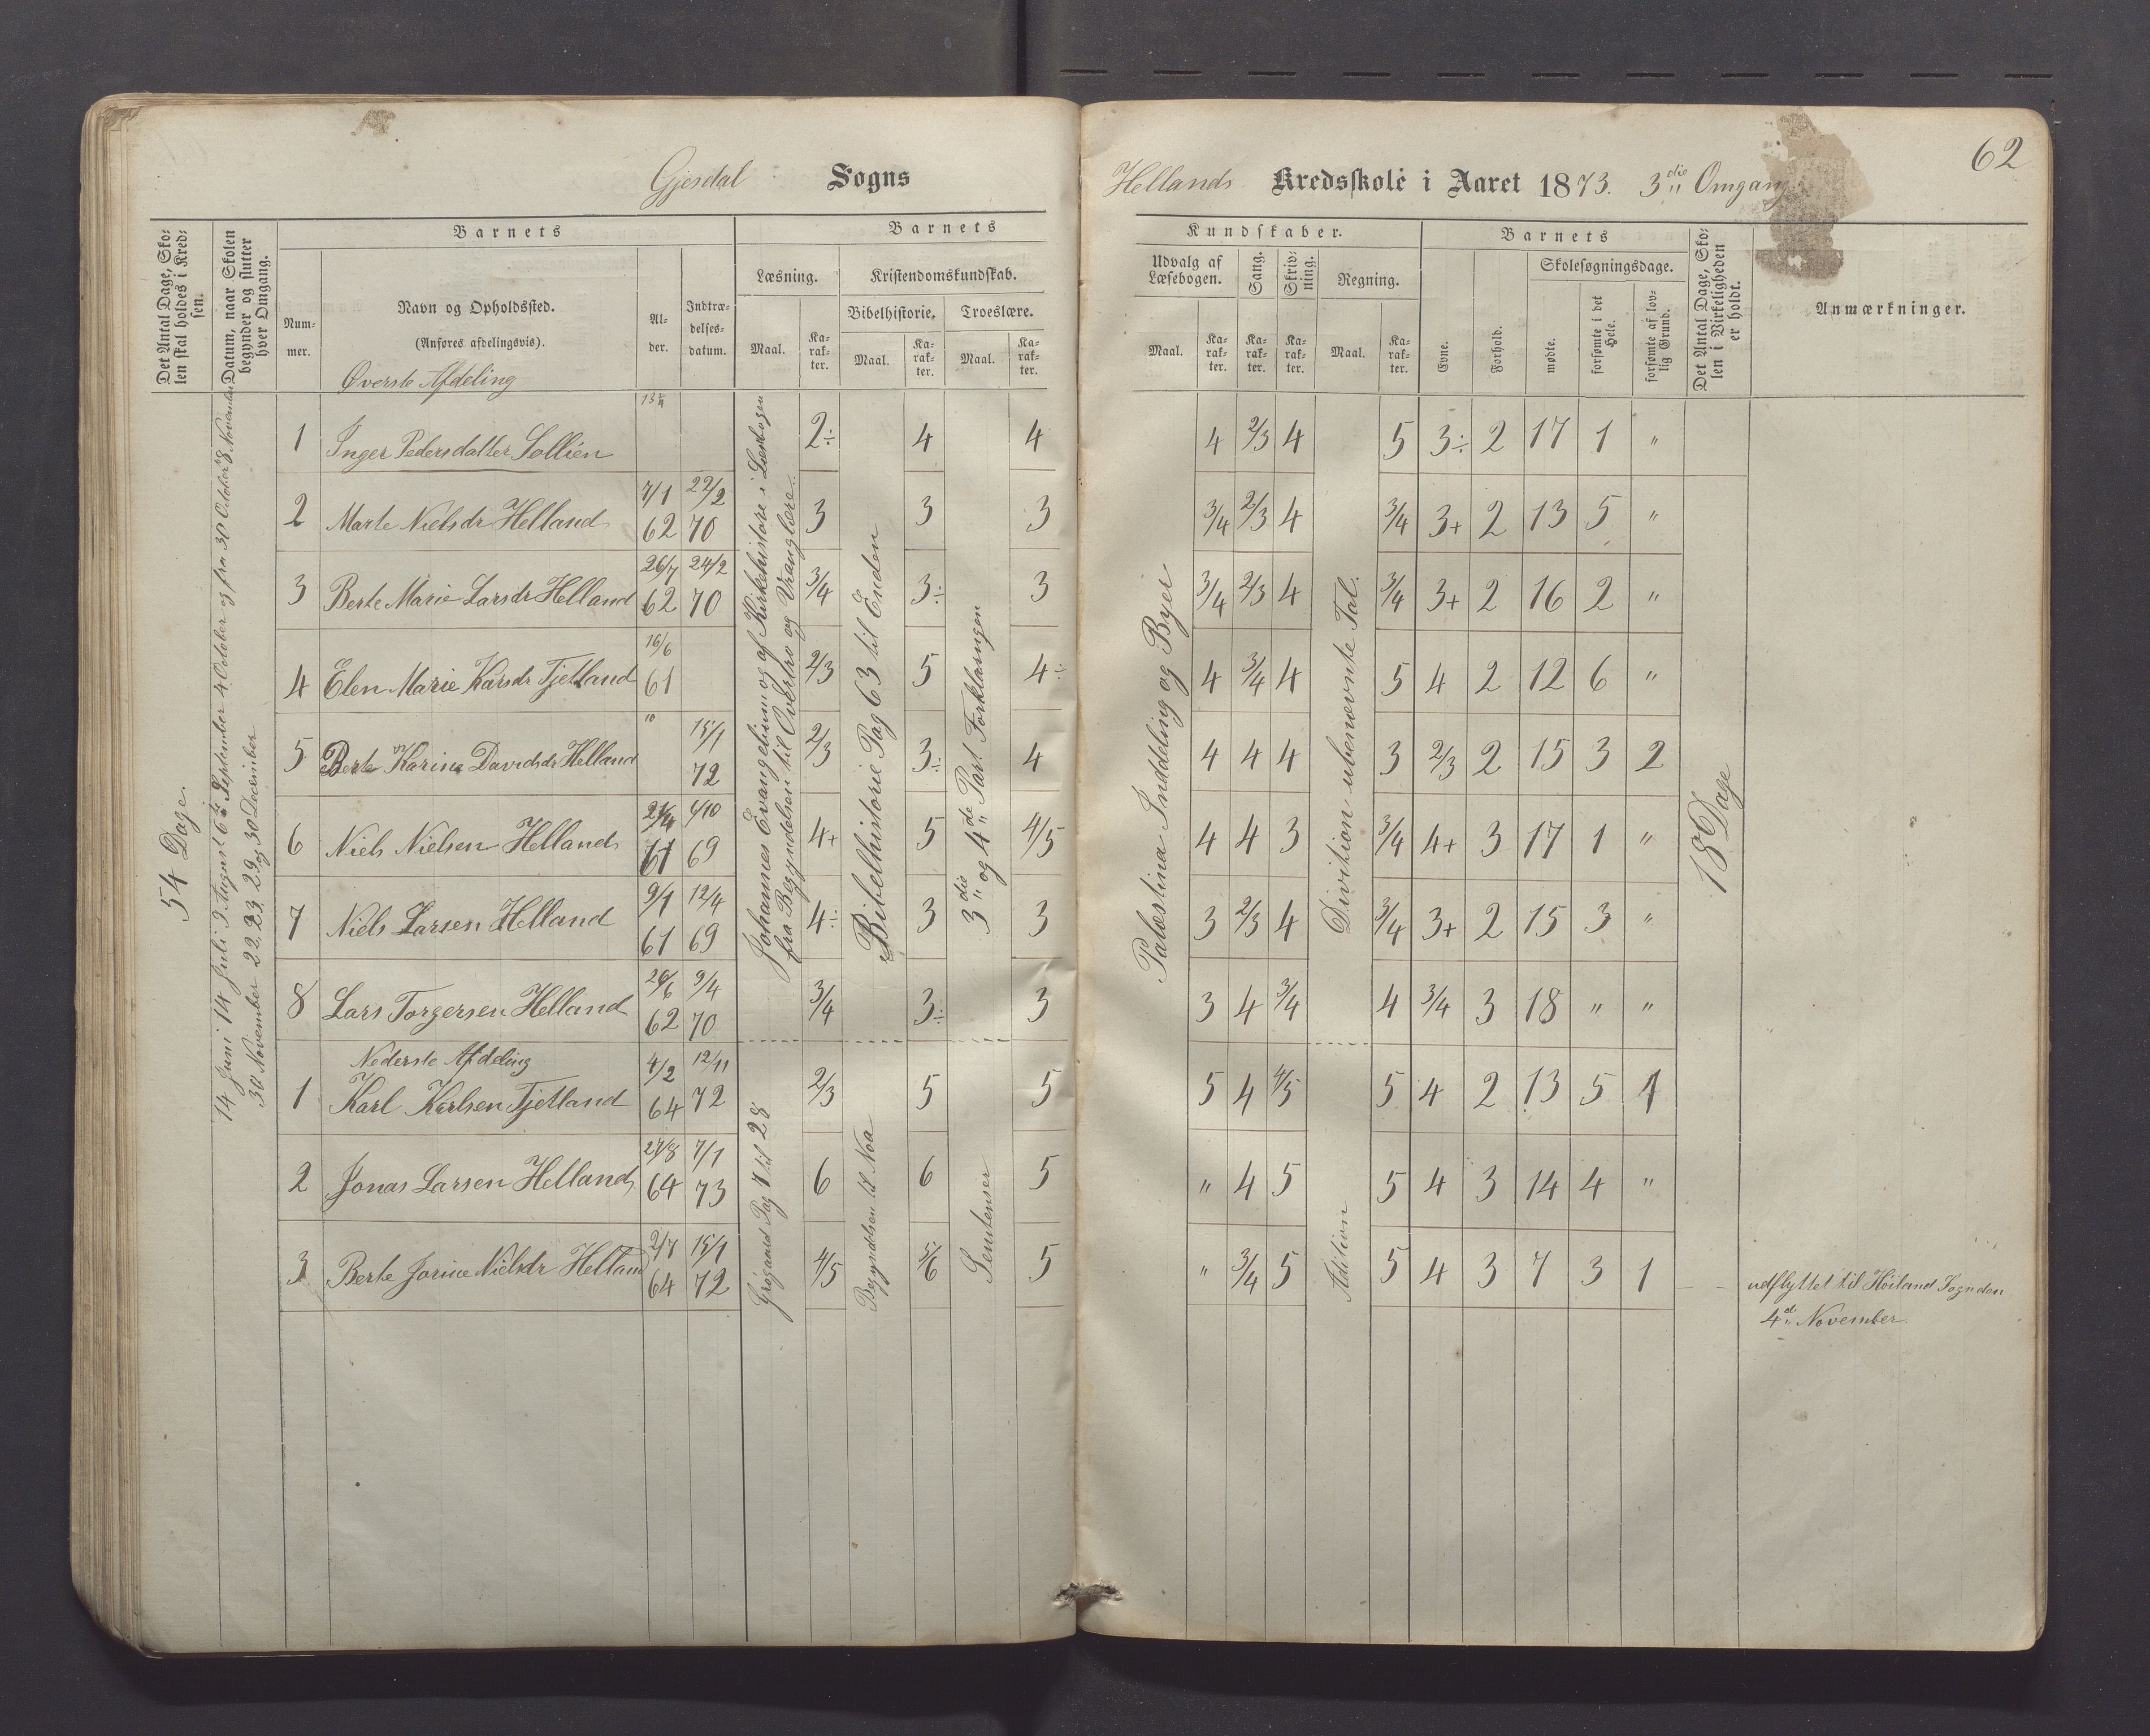 62
Gjesdal Sogns
Hellands Kredsskole i Aaret 1873. 3die Omgang
Det Antal Dage, Sko-
len skal holdes i Kred-
sen.
Datum, naar Skolen
begynder og slutter
hver Omgang.
Barnets
Num-
mer.
Navn og Opholdssted.
(Anføres afdelingsvis).
Øverste Afdeling
Al-
der.
Indtræ-
delses-
datum.
Barnets
Læsning.
Maal.
Ka-
rak-
ter.
Kristendomskundskab.
Bibelhistorie.
Maal.
Ka-
rak-
ter.
Troeslære.
Maal.
Ka-
rak-
ter.
Kundskaber.
Udvalg af
Læsebogen.
Maal.
Ka-
rak-
ter.
Sang.
Ka-
rak-
ter.
Skriv-
ning.
Ka-
rak-
ter.
Regning.
Maal.
Ka-
rak-
ter.
Barnets
Evne.
Forhold.
Skolesøgningsdage.
mødte.
forsømte i det
Hele.
forsømte af lov-
lig Grund.
Det Antal Dage, Sko-
len i Virkeligheden
er holdt.
Anmærkninger.
54 Dage.
14 Juni 14 Juli 9 August 6 September 4 October og fra 30 October 8 November
30 November 22, 23, 29 og 30 December
Johannes Evangelium og af Kirkehistorie i Læsebogen
fra Begyndelsen til Overtro og Vranglære.
Bibelhistorie Pag 63 til Enden
3die og 4de Part Forklaringen
Palæstina Inddeling og Byer
Division ubenævnte Tal.
18 Dage
1 Inger Pedersdatter Sollien 13¼ 2÷ 4 4 4 2/3 4 5 3÷ 2 17 1 "
2 Marte Nielsdr Helland 7/1 62 22/2 70 3 3 3 3/4 2/3 4 3/4 3+ 2 13 5 "
3 Berte Marie Larsdr Helland 26/7 62 24/2 70 3/4 3÷ 3 3/4 2/3 4 3/4 3+ 2 16 2 "
4 Elen Marie Karsdr Tjetland 16/6 61 2/3 5 4÷ 4 3/4 4 5 4 2 12 6 "
5 Berte Karine Davidsdr Helland " 15/1 72 2/3 3÷ 4 4 4 4 3 2/3 2 15 3 2
6 Niels Nielsen Helland 61 4/10 69 4+ 5 4/5 4 4 3 3/4 4+ 3 17 1 "
7 Niels Larsen Helland 9/1 61 12/4 69 4÷ 3 3 3 2/3 4 3/4 3+ 2 15 3 "
8 Lars Torgersen Helland 26/6 62 9/4 70 3/4 3÷ 3 3 4 3/4 4 3/4 3 18 " "
Nederste Afdeling
1 Karl Karlsen Tjetland 4/2 64 12/11 72 2/3 5 5 5 4 4/5 5 4 2 13 5 1
2 Jonas Larsen Helland 27/8 64 7/1 73 6 6 5 " 4 5 5 4 3 14 4 "
3 Berte Jorine Nielsdr Helland 2/7 64 15/1 72 4/5 5/6 5 " 3/4 5 5 4 3 7 3 1 udflyttet til Høiland Sogn den
4de November.
Grøgaard Pag 1 til 28
Begyndelsen til Noa
Sentenser
Adition